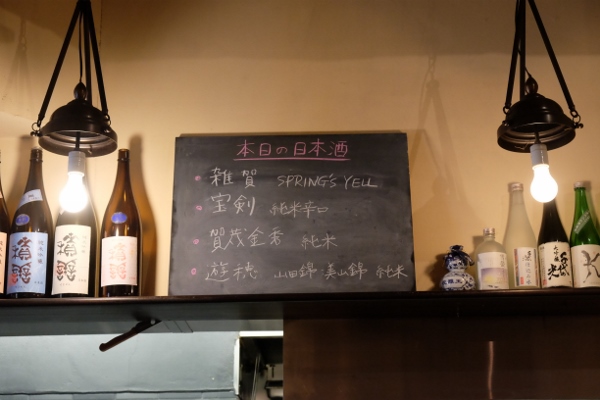 本日の日本酒
雑賀 SPRING'S YELL
宝剣 純米辛口
賀茂金秀 純米
遊穂 山田錦 美山錦 純米